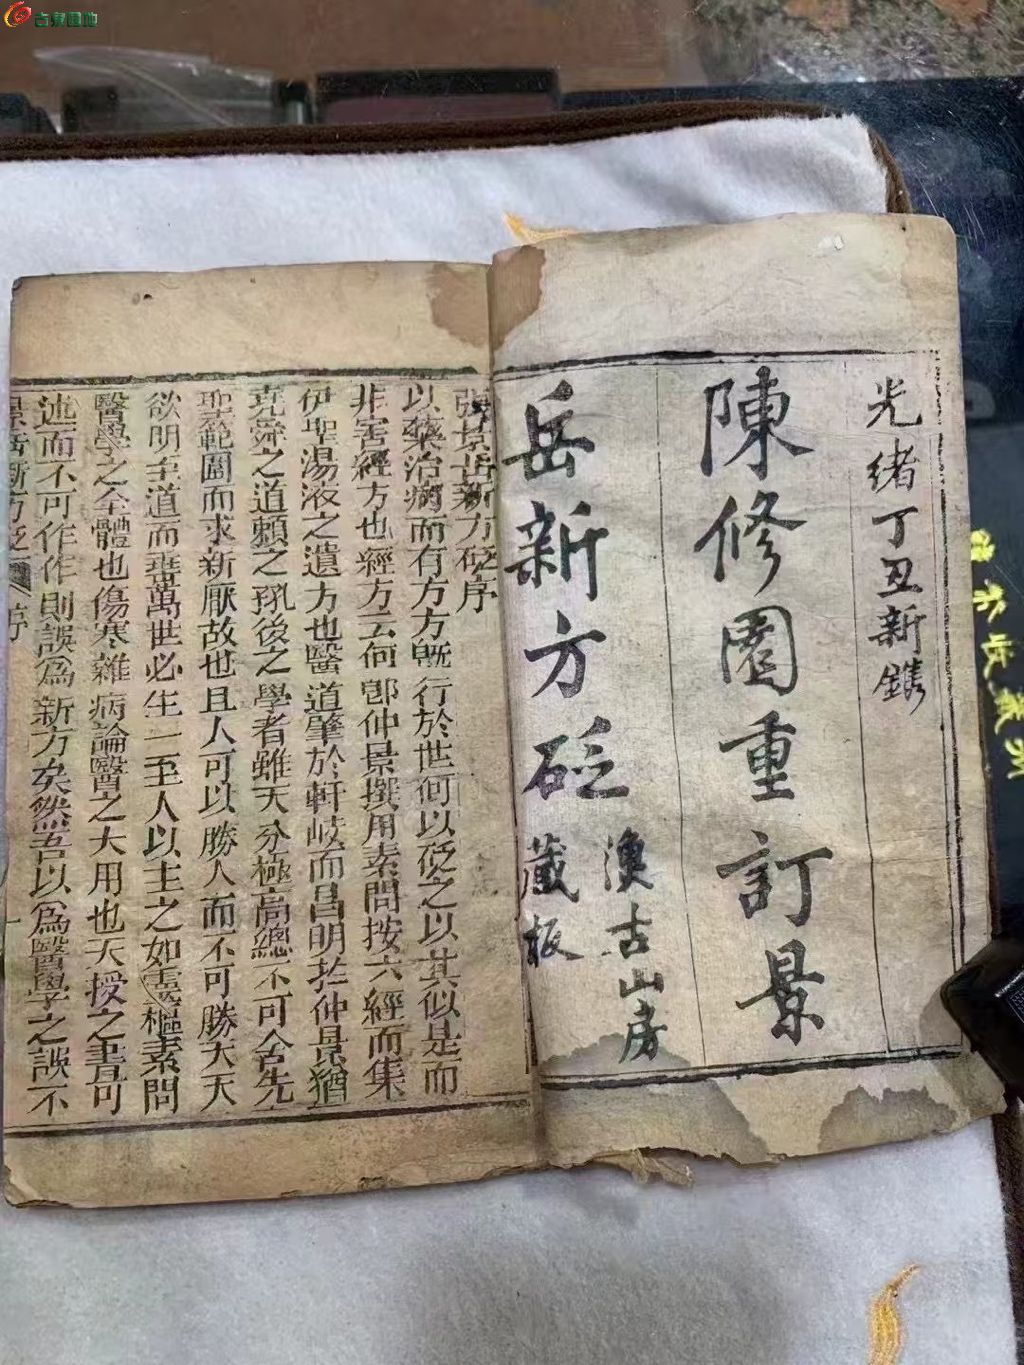 古泉園地
光緒丁丑新鐫
陳修園重訂景
岳新方砭
漁古山房
藏板
張景岳新方砭序
以藥治病而有方方旣行於世何以砭之以其似是而
非害經方也經方云何卽仲景撰用素問按六經而集
伊聖湯液之遺方也醫道肇於軒岐而昌明於仲景猶
堯舜之道賴之孔後之學者雖天分極高總不可舍先
聖範圍而求新厭故也且人可以勝人而不可勝天天
欲明至道而垂萬世必生一二至人以主之如靈樞素問
醫學之全體也傷寒雜病論醫之大用也天授之書可
述而不可作作則誤爲新方矣然吾以爲醫學之誤不
景岳新方砭
序
一